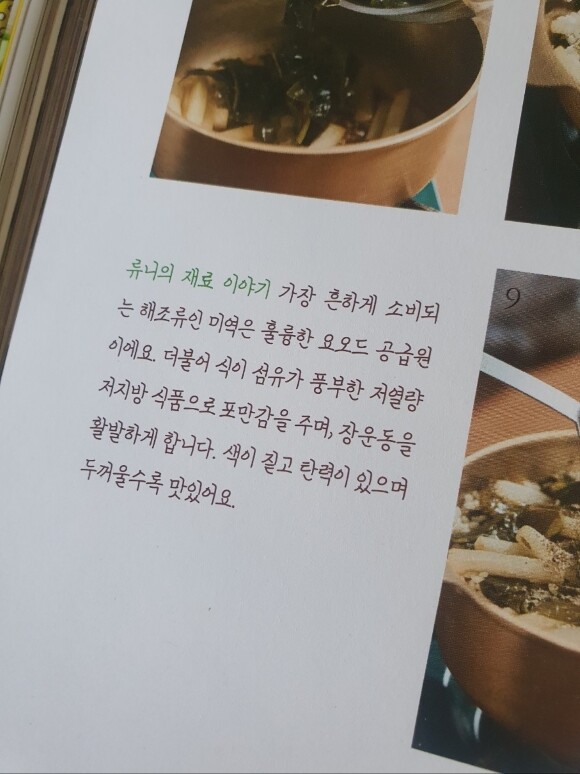 류니의 재료 이야기 가장 흔하게 소비되
는 해조류인 미역은 훌륭한 요오드 공급원
이에요. 더불어 식이 섬유가 풍부한 저열량
저지방 식품으로 포만감을 주며, 장운동을
활발하게 합니다. 색이 짙고 탄력이 있으며
두꺼울수록 맛있어요.
9